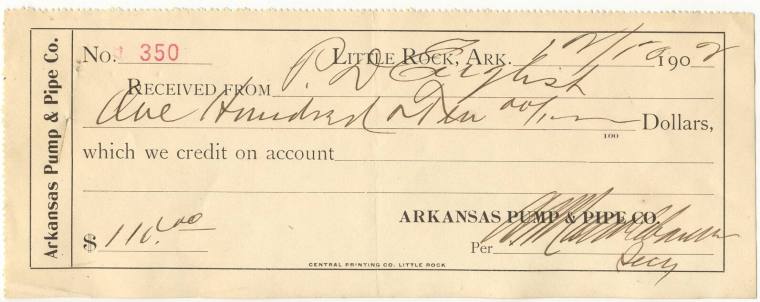 Arkansas Pump & Pipe Co.
No. 350 LITTLE ROCK, ARK. 12/10 1902
RECEIVED FROM P. D. English
One Hundred & Ten 00/100 Dollars,
which we credit on account
ARKANSAS PUMP & PIPE CO.
$ 110.00 Per
Secy
CENTRAL PRINTING CO. LITTLE ROCK